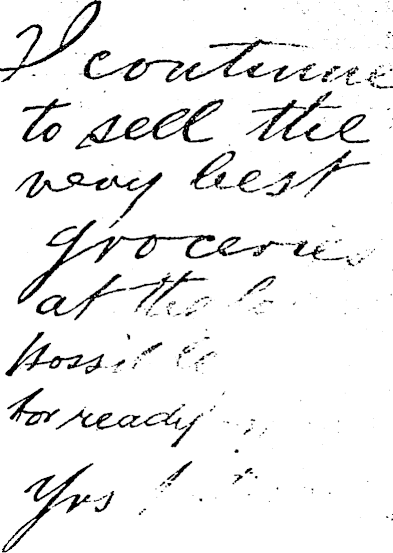 I continue
to sell the
very best
groceries
at the
possible
for ready
Yrs